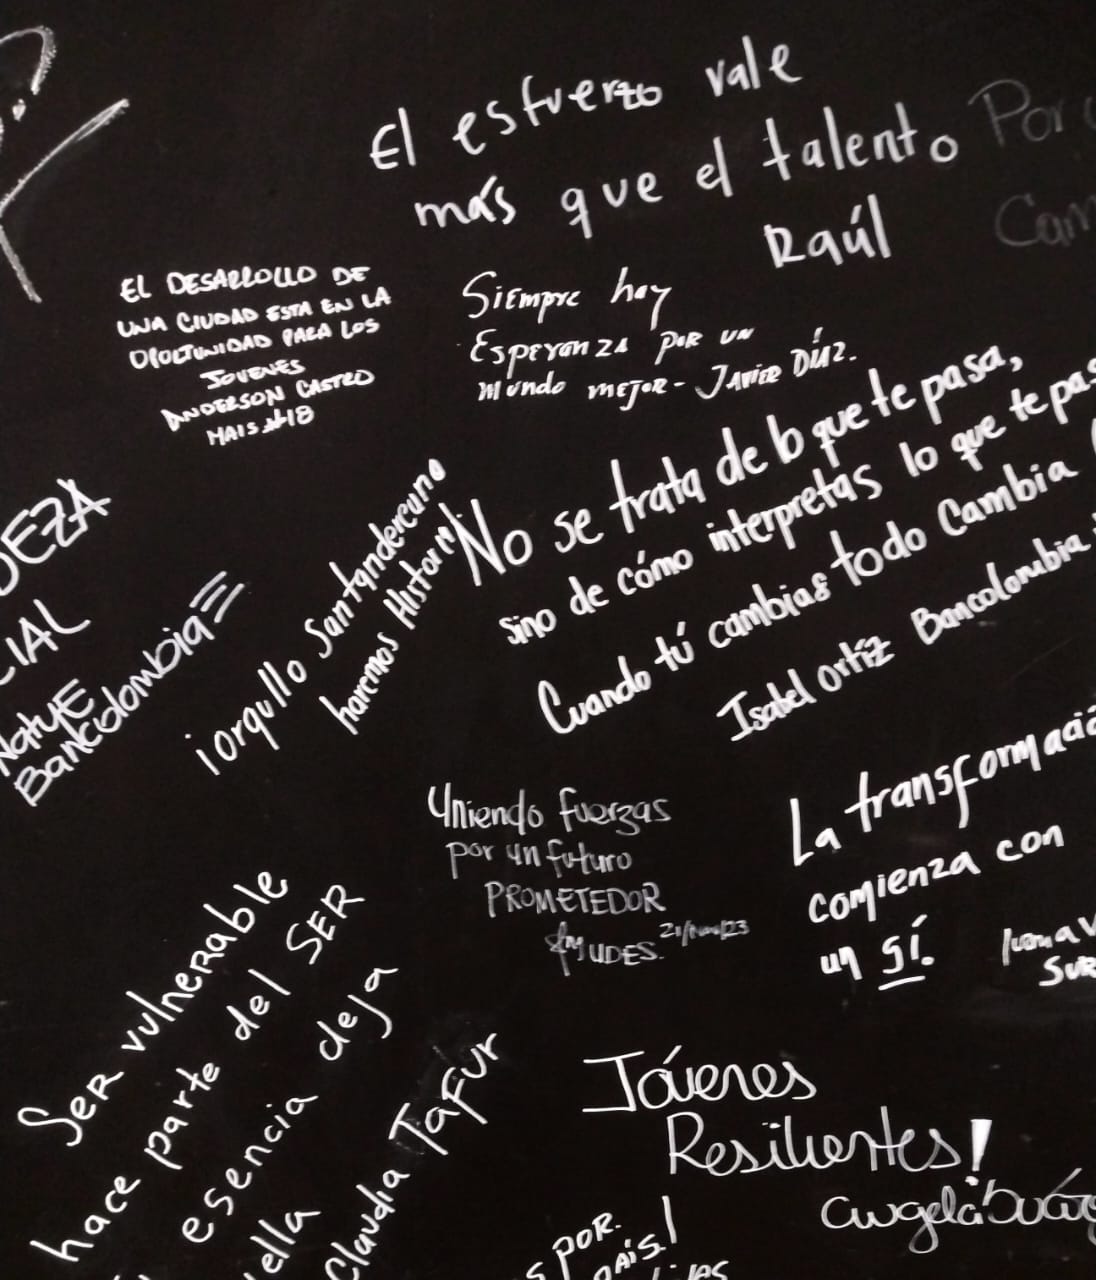 El esfuerzo vale
más que el talento
Raúl
Por
Cam
EL DESARROLLO DE
UNA CIUDAD ESTA EN LA
OPORTUNIDAD PARA LOS
JOVENES
ANDERSON CASTRO
MAIS 18
Siempre hay
Esperanza por un
mundo mejor - Javier Díaz.
No se trata de lo que te pasa,
sino de cómo interpretas lo que te pas
Cuando tú cambias todo Cambia
Isabel Ortíz Bancolombia
¡orgullo Santandereano
haremos Historia!
DEZA
CIAL
Natye
Bancolombia
Uniendo fuerzas
por un futuro
PROMETEDOR
FMUDES. 21/Nov/23
La transformació
comienza con
un SÍ.
SUR
Ser vulnerable
hace parte del SER
esencia deja
ella
Claudia Tafur
Jóvenes
Resilientes!
Angela Suár
POR.
país!